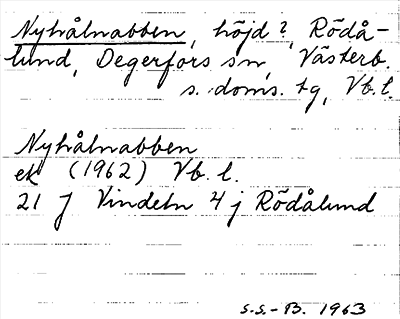 Nyhålnabben, höjd?, Rödå-
lund, Degerfors sn, Västerb.
s. doms. tg, Vb. l.
Nyhålnabben
ek (1962) Vb. l.
21 J Vindeln 4 j Rödålund
S.S.-B. 1963